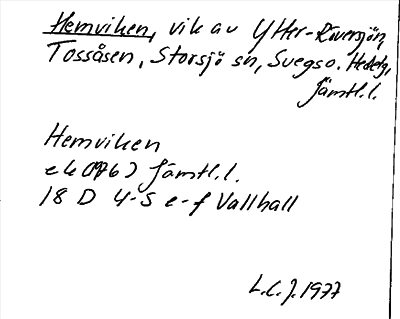 Hemviken, vik av Ytter-Röversjön,
Tossåsen, Storsjö sn, Svegs o. Hedefg,
Jämtl.l.
Hemviken
ek 0762 Jämtl.l.
18 D 4-5 e-f Vallhall
L.C.J. 1977